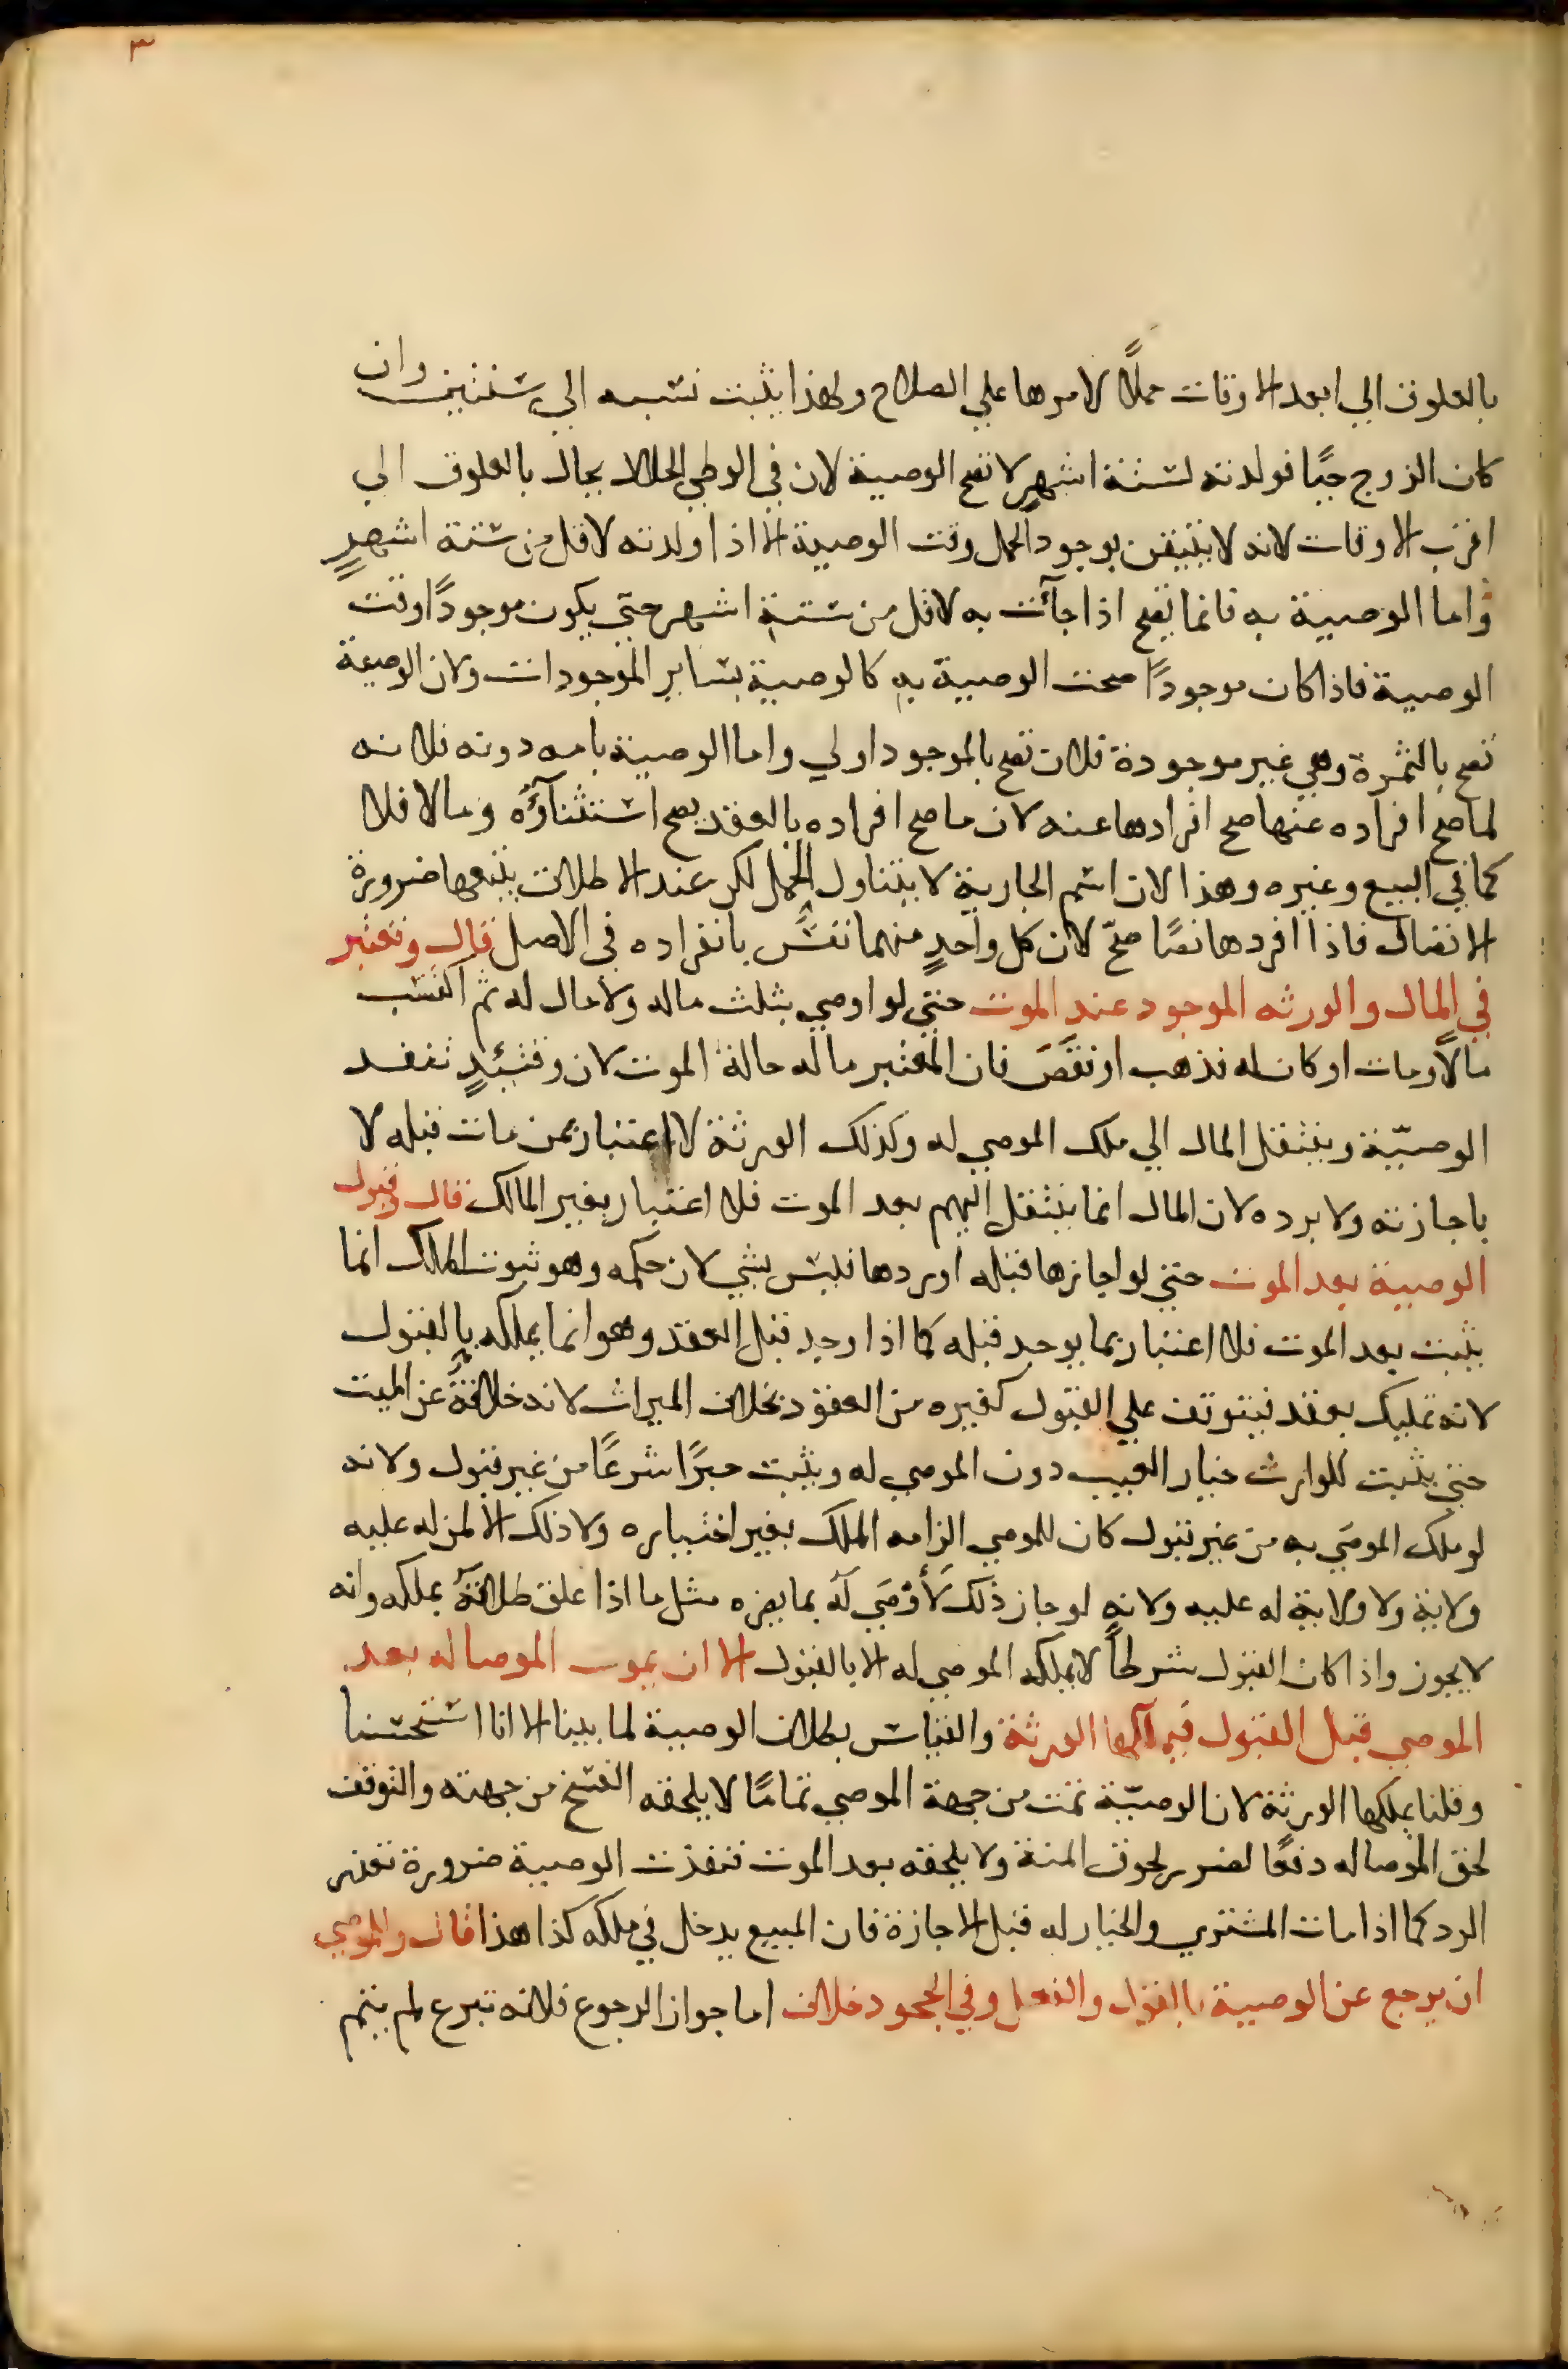 ٣
بالعلوق الي ابعد الاوقات حملاً لامرها علي الصلاح ولهذا يثبت نسبه الي سنتين وان
كان الزوج حيًا فولدته لستة اشهرٍ لا تصح الوصية لان في الوطي الحلال يحال بالعلوق الي
اقرب الاوقات لانه لا يتيقن بوجود الحمل وقت الوصية الا اذا ولدته لاقل من ستة اشهرٍ
واما الوصية به فانما يصح اذا جآئت به لاقل من ستة اشهر حتي يكون موجودًا وقت
الوصية فاذا كان موجودًا صحت الوصية به كالوصية بساير الموجودات ولان الوصية
تصح بالثمرة وهي غير موجودة فلان تصح بالموجود اولي واما الوصية بامه دونه فلانه
لما صح افراده عنها صح افرادها عنه لان ما صح افراده بالعقد يصح استثنآؤه وما لا فلا
كما في البيع وغيره وهذا لان اسم الجارية لا يتناول الحمل لكن عند الاطلاق يتبعها ضرورة
الاتصال فاذا افردها نصًا صحّ لان كل واحدٍ منهما نفسٌ بانفراده في الاصل قال وتعتبر
في المال والورثه الموجود عند الموت حتي لو اوصي بثلث ماله ولا مال له ثم اكتسب
مالاً ومات او كان له فذهب او نقَصَ فان المعتبر ماله حالة الموت لان وقتئذٍ تنفد
الوصيّة وينتقل المال الي ملك الموصي له وكذلك الورثة لا اعتبار بمن مات قبله لا
باجازته ولا برده لان المال انما ينتقل اليهم بعد الموت فلا اعتبار بغير المالك قال وقبول
الوصية بعد الموت حتي لو اجازها قبله او ردها فليس بشي لان حكمه وهو ثبوت الملك انما
يثبت بعد الموت فلا اعتبار بما يوجد قبله كما اذا وجد قبل العقد وهو انما يملكه بالقبول
لانه تمليك بعقد فيتوقف علي القبول كغيره من العقود بخلاف الميراث لانه خلافةٌ عن الميت
حتي يثبت للوارث خيار العيب دون الموصي له ويثبت جبرًا شرعًا من غير قبول ولانه
لو ملك الموصَي به من غير قبول كان للموصي الزامه الملك بغير اختياره ولا ذلك الا لمن له عليه
ولاية ولا ولاية له عليه ولانه لو جاز ذلك لَأَوْصَي له بما يضره مثل ما اذا علق طلاقه بملكه وانه
لا يجوز واذا كان القبول شرطاً لا يملكه الموصي له الا بالقبول الا ان يموت الموصا له بعد
الموصي قبل القبول فيملكها الورثة والقياس بطلان الوصية لما بينا الا انا استحسنا
وقلنا يملكها الورثة لان الوصيّة تمت من جهة الموصي تمامًا لا يلحقه الفسخ من جهته والتوقف
لحق الموصا له دفعًا لضرر لحوق المنة ولا يلحقه بعد الموت فنفذت الوصية ضرورة تعذر
الرد كما اذا مات المشتري والخيار له قبل الاجازة فان المبيع يدخل في ملكه كذا هذا قال وللموصي
ان يرجع عن الوصية بالقول والفعل وفي الجحود خلاف اما جواز الرجوع فلانه تبرع لم يتم